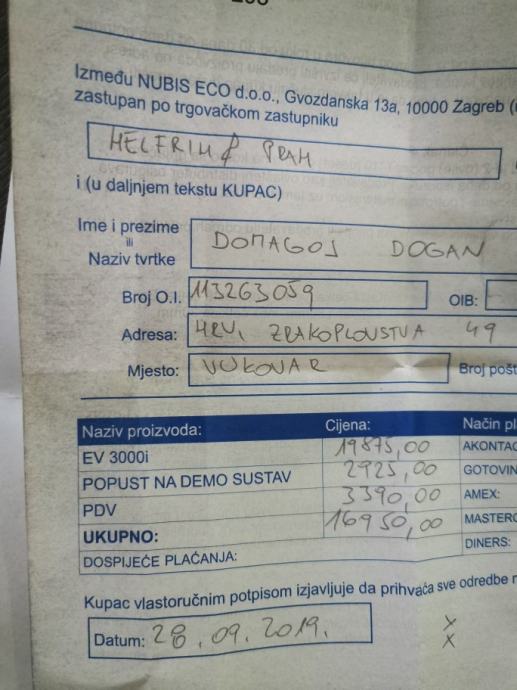 Između NUBIS ECO d.o.o., Gvozdanska 13a, 10000 Zagreb (
zastupan po trgovačkom zastupniku
i (u daljnjem tekstu KUPAC)
Ime i prezime DOMAGOJ DOGAN
ili
Naziv tvrtke
Broj O.I. 113263059 OIB:
Adresa: HRV. ZRAKOPLOVSTVA 49
Mjesto: VUKOVAR Broj pošt
Naziv proizvoda: Cijena: Način pl
EV 3000i 19875,00 AKONTAC
POPUST NA DEMO SUSTAV 2925,00 GOTOVIN
PDV 3390,00 AMEX:
UKUPNO: 16950,00 MASTERC
DOSPIJEĆE PLAĆANJA: DINERS:
Kupac vlastoručnim potpisom izjavljuje da prihvaća sve odredbe
Datum: 28.09.2019. X
X